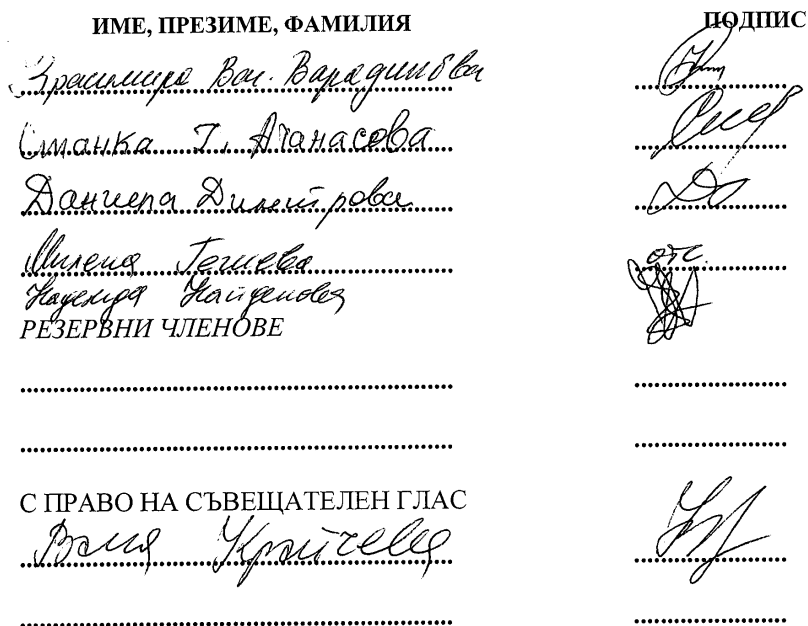 ИМЕ, ПРЕЗИМЕ, ФАМИЛИЯ ПОДПИС
Красимира Вас. Варадинова
Станка Т. Атанасова
Даниела Димитрова
Милена Гечева отс.
Надежда Найденова
РЕЗЕРВНИ ЧЛЕНОВЕ
С ПРАВО НА СЪВЕЩАТЕЛЕН ГЛАС
Валя Крайчева